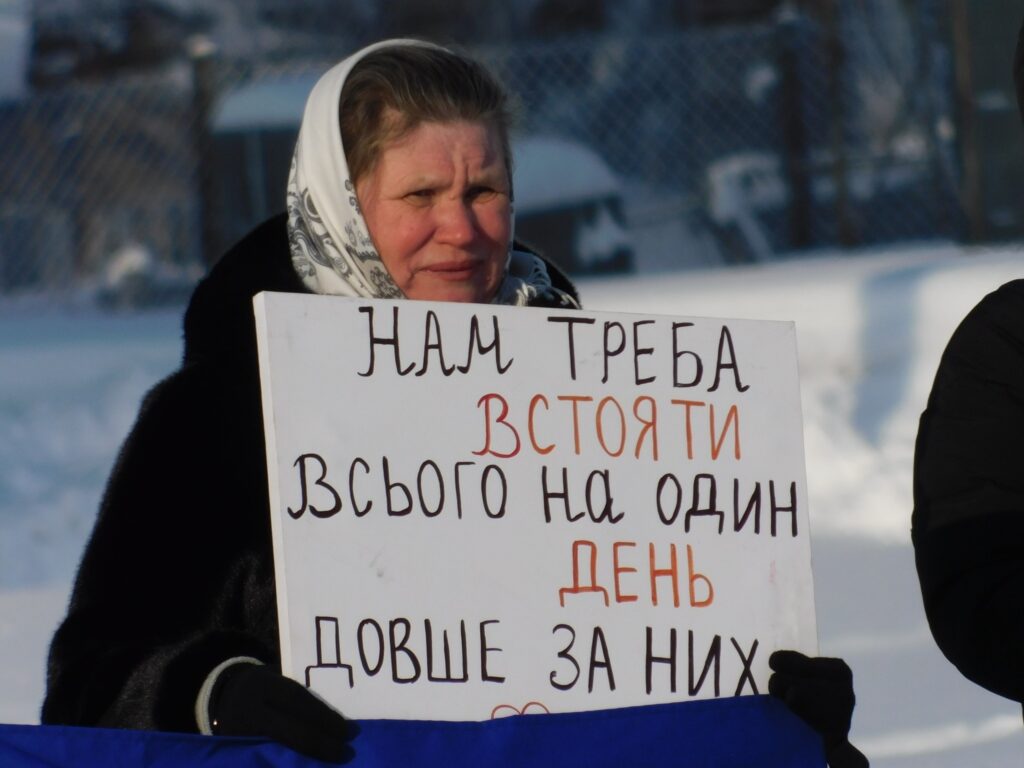 НАМ ТРЕБА
ВСТОЯТИ
ВСЬОГО НА ОДИН
ДЕНЬ
ДОВШЕ ЗА НИХ